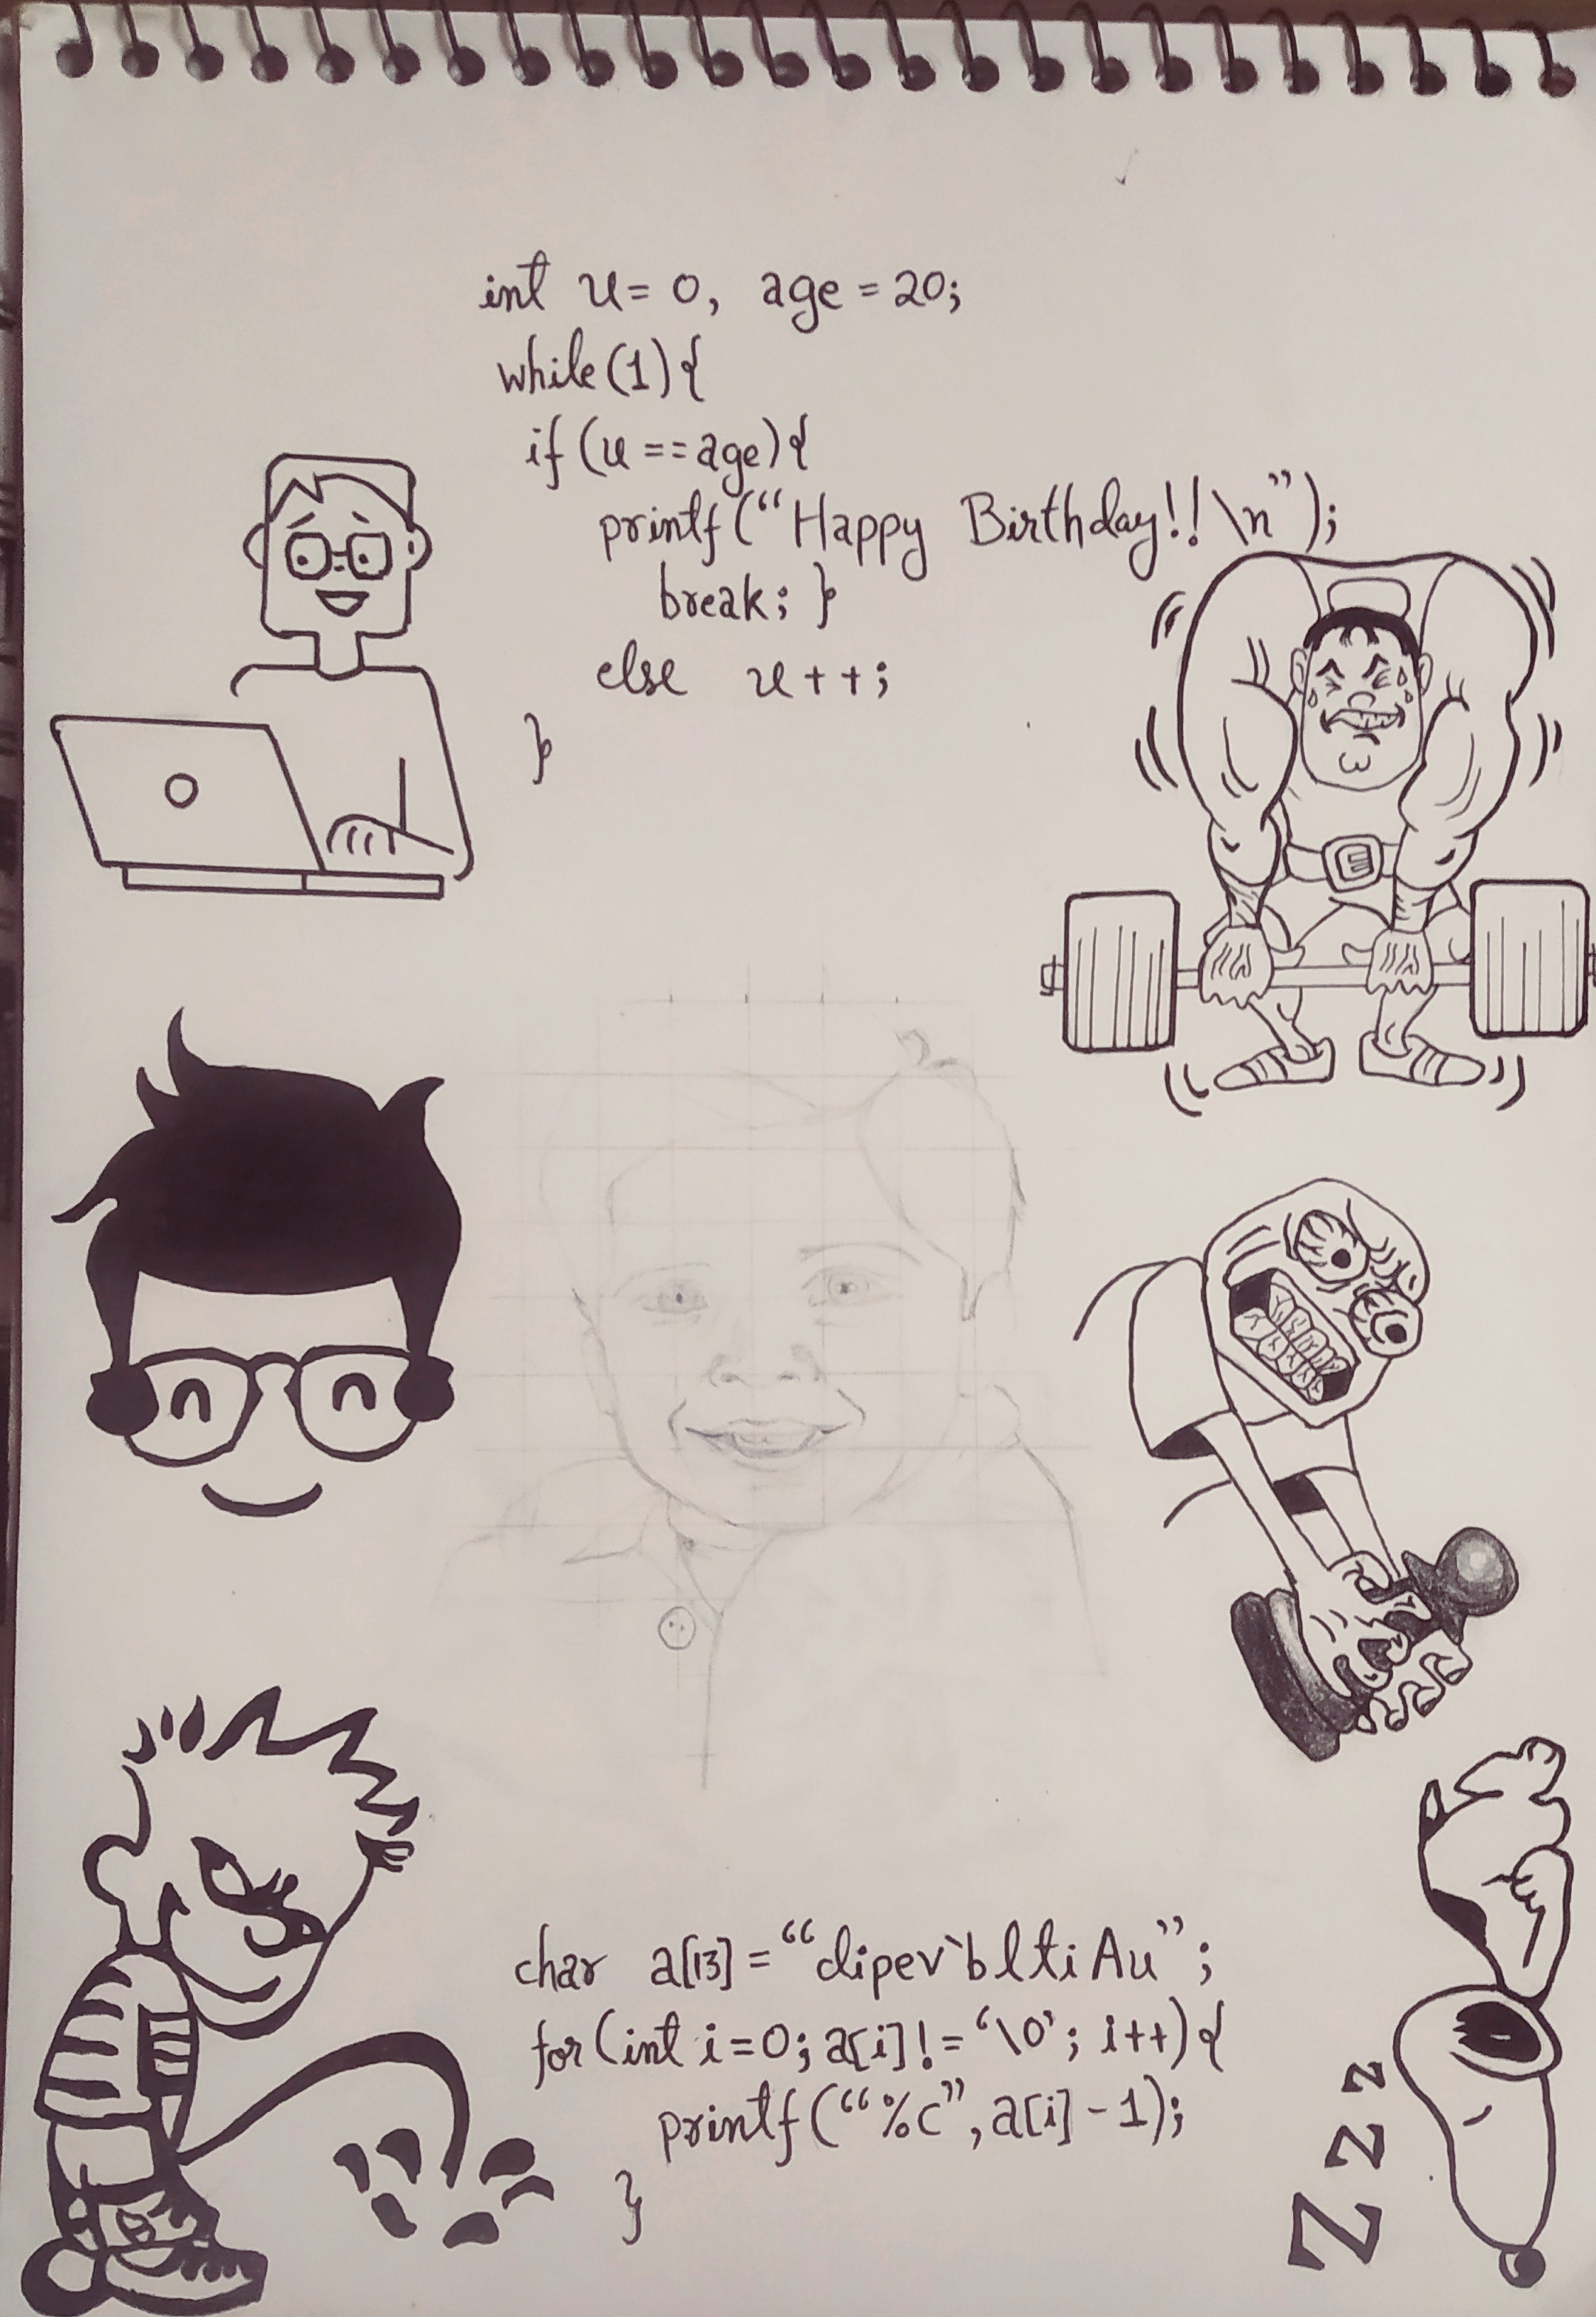 int u = 0, age = 20;
while(1){
if (u == age){
printf("Happy Birthday!! \n");
break; }
else u++;
}
char a[13] = "dipev`bltiAu";
for (int i=0; a[i] != '\0'; i++){
printf("%c", a[i] - 1);
}
Z z z